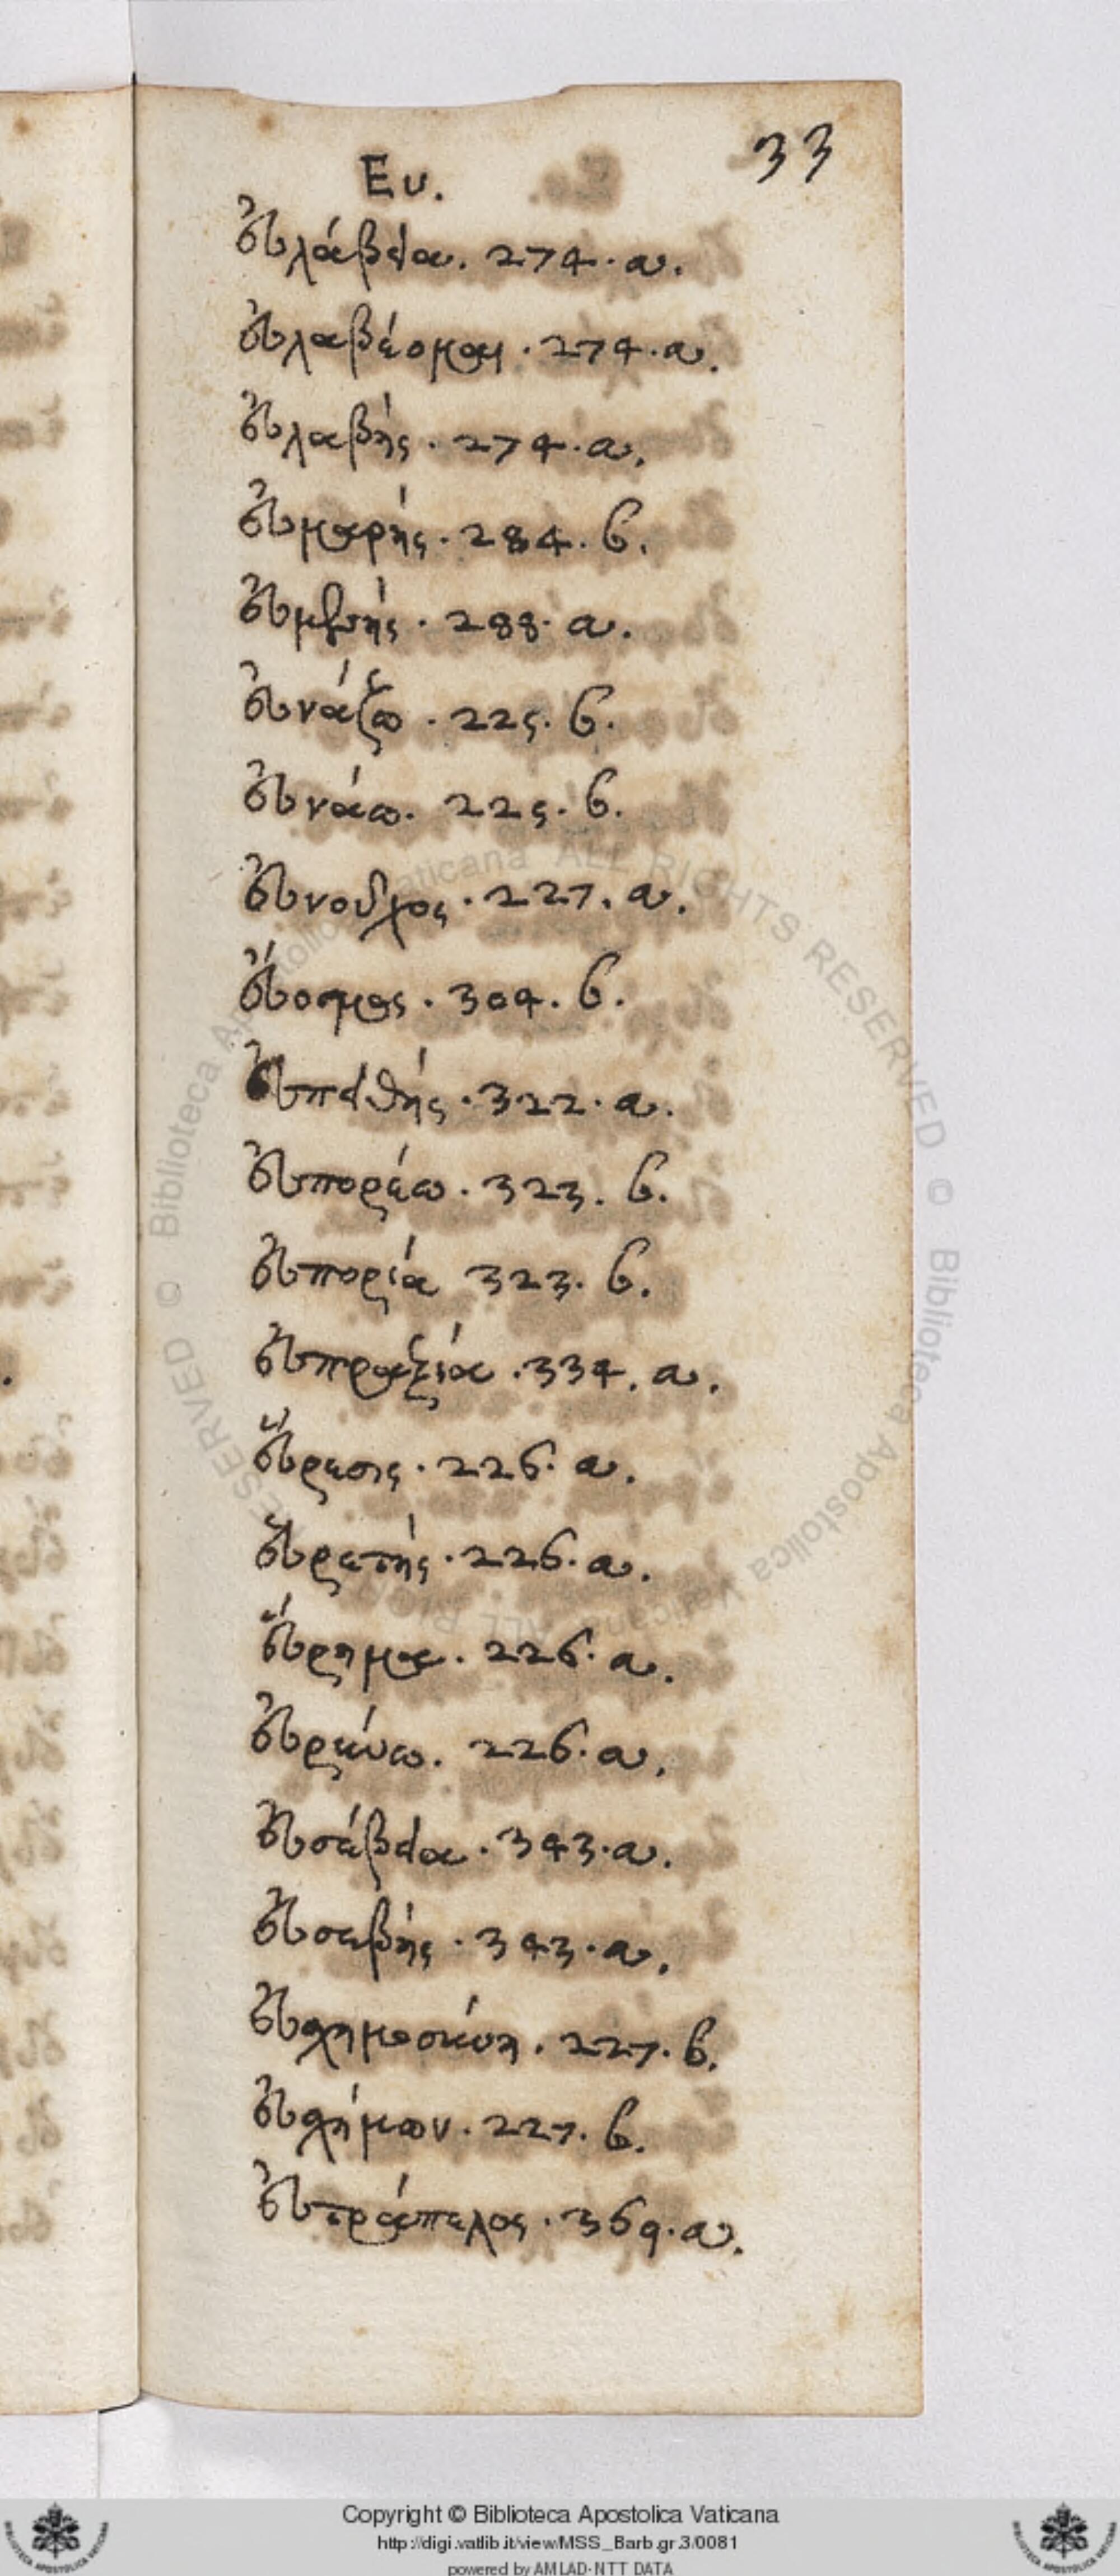 33
Ευ.
εὐλάβεια. 274. a.
εὐλαβέομαι. 274. a.
εὐλαβής. 274. a.
εὐμαρής. 284. b.
εὐμενής. 288. a.
εὐνάζω. 225. b.
εὐνάω. 225. b.
εὐνοῦχος. 227. a.
εὔοσμος. 304. b.
εὐπειθής. 322. a.
εὐπορέω. 323. b.
εὐπορία 323. b.
εὐπραξία. 334. a.
εὕρεσις. 226. a.
εὑρετής. 226. a.
εὕρημα. 226. a.
εὑρίσκω. 226. a.
εὐσέβεια. 343. a.
εὐσεβής. 343. a.
εὐσχημοσύνη. 227. b.
εὐσχήμων. 227. b.
εὐτράπελος. 369. a.
Biblioteca Apostolica Vaticana ALL RIGHTS RESERVED ©
Copyright © Biblioteca Apostolica Vaticana
http://digi.vatlib.it/view/MSS_Barb.gr.3/0081
powered by AMLAD-NTT DATA